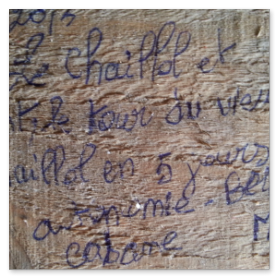 2013
Chaillol et
tour du vieux
aillol en 5 jours
autonomie. Belle
cabane M